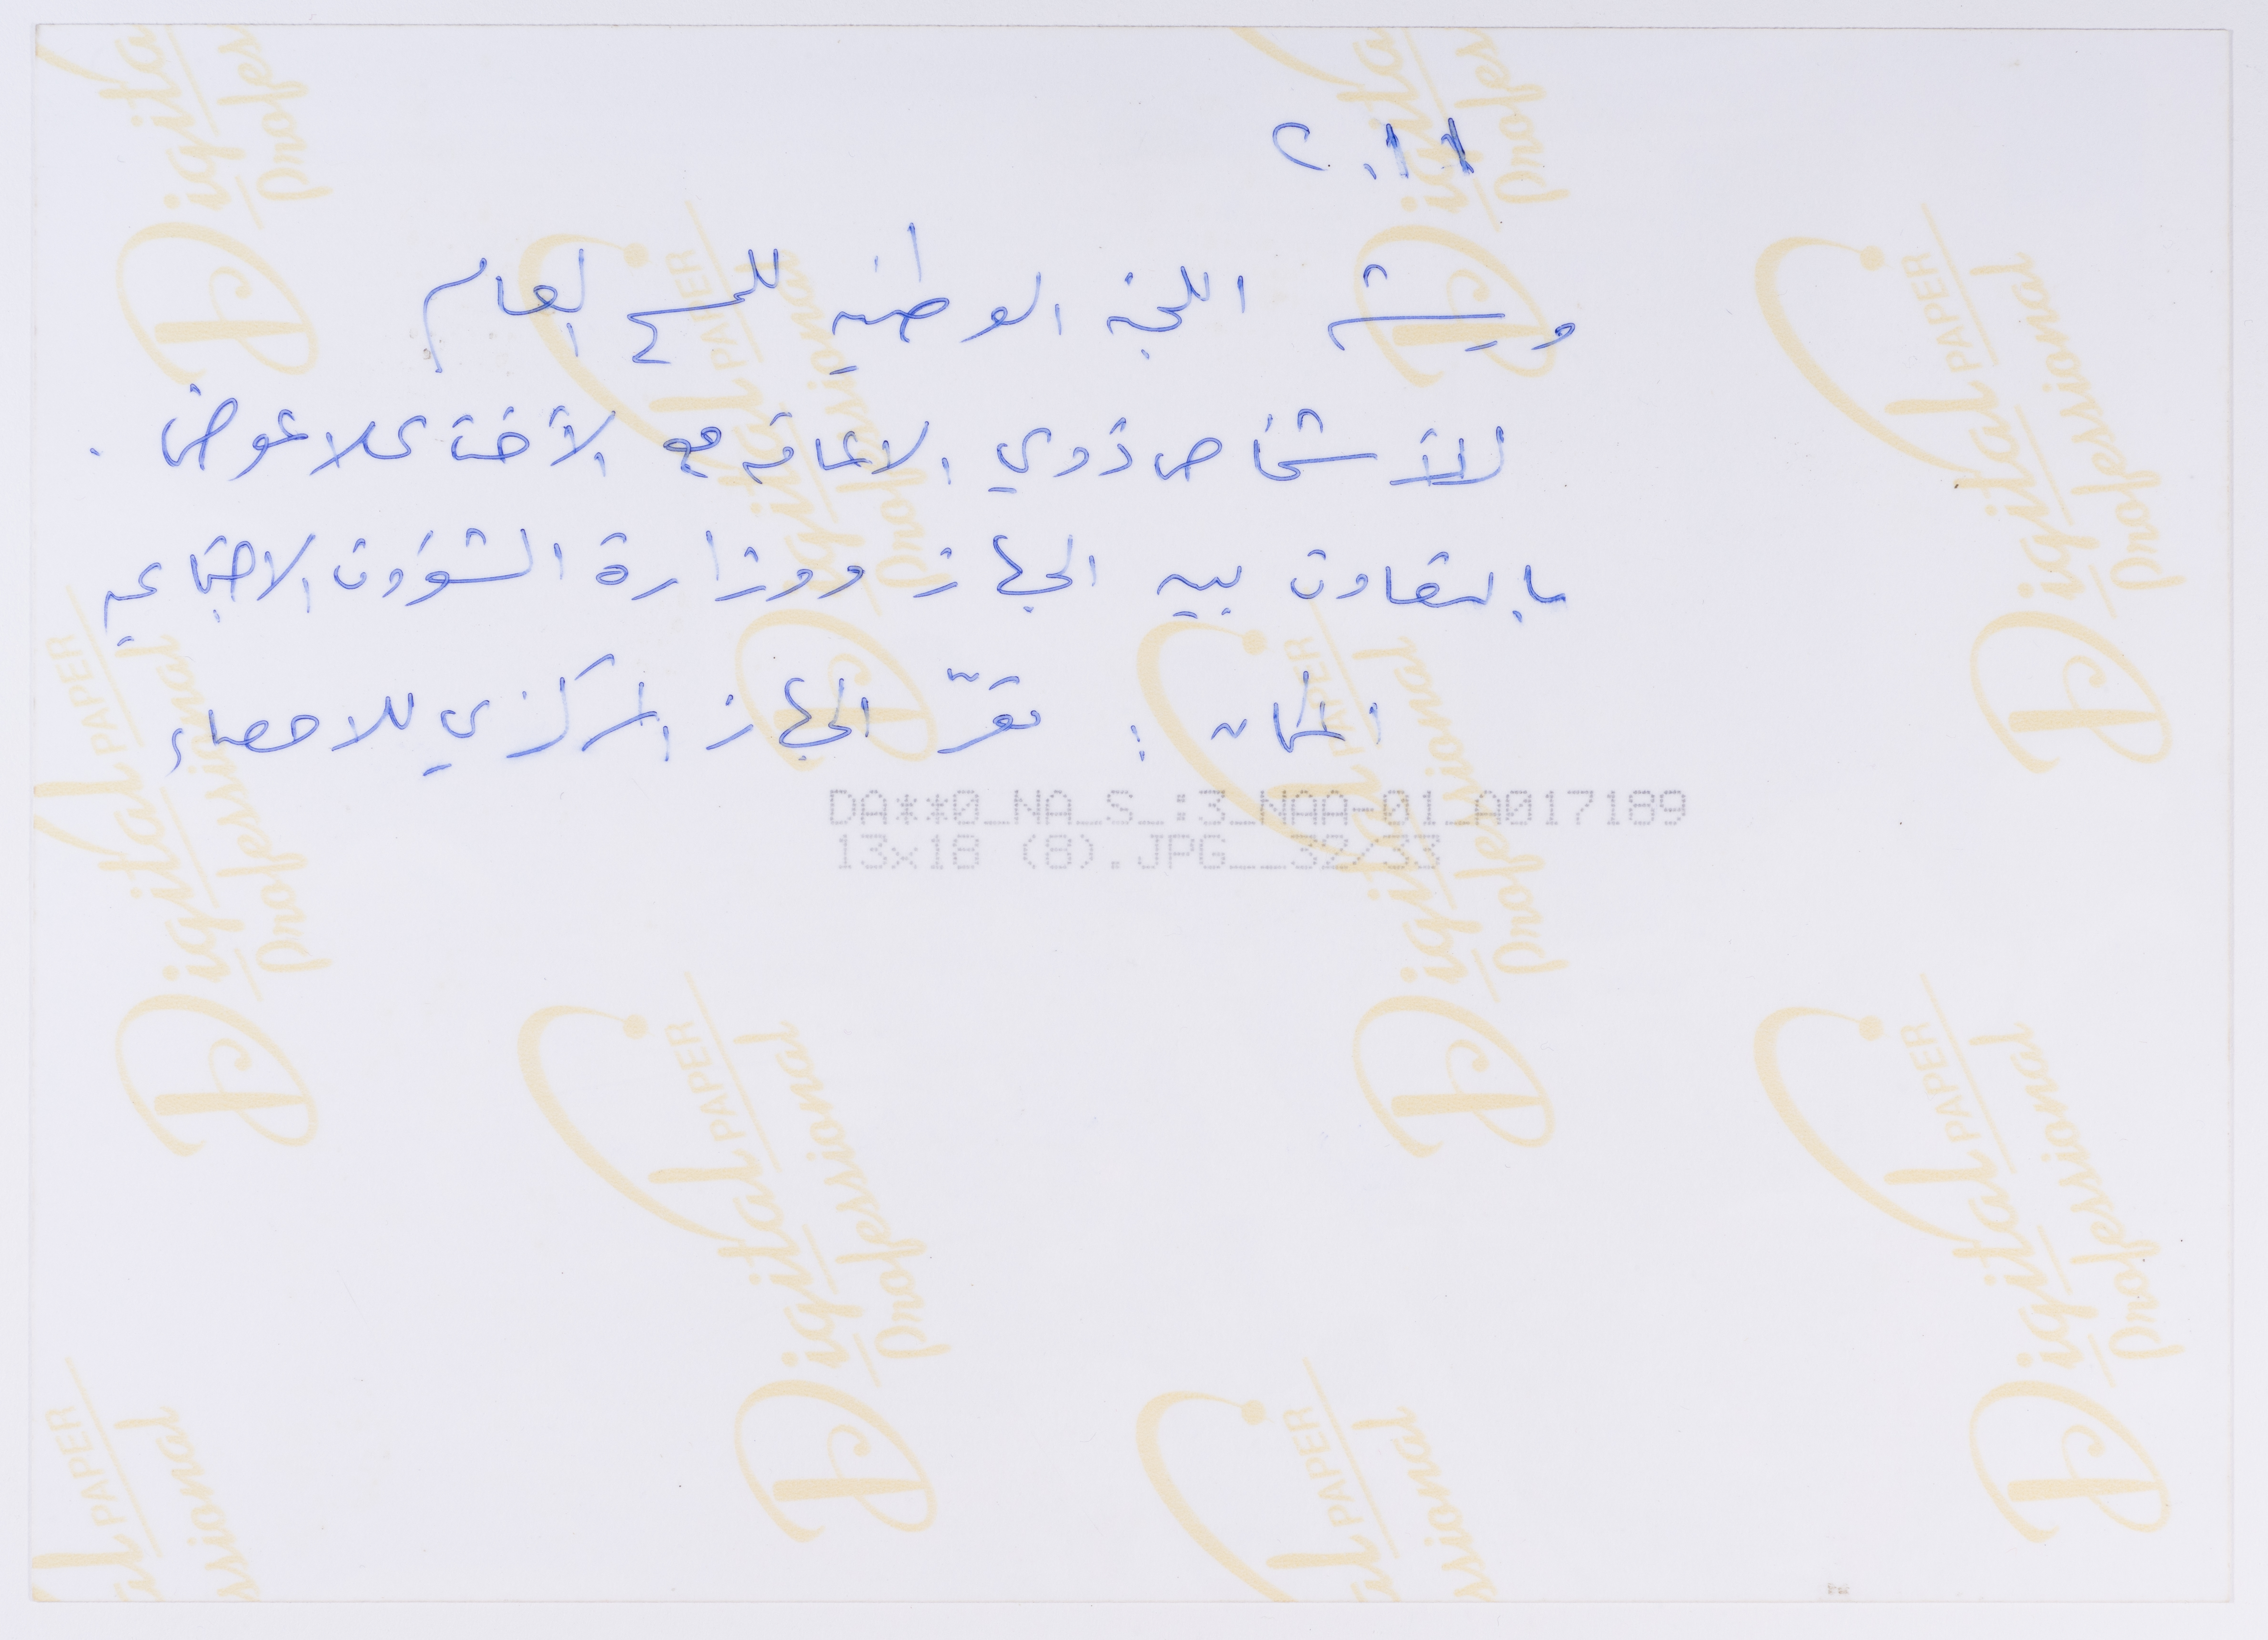 ٢٠١١
ورشة اللجنة الوطنية للمسح العام
للأشخاص ذوي الاعاقة مع الأخت علا عوض .
بالتعاون بين الجهاز ووزارة الشؤون الاجتماعية
المكان : مقرّ الجهاز المركزي للاحصاء
DA**0_NA_S_:3_NAA-01_A017189
13x18 (8).JPG__32/33
Digital PAPER
Professional